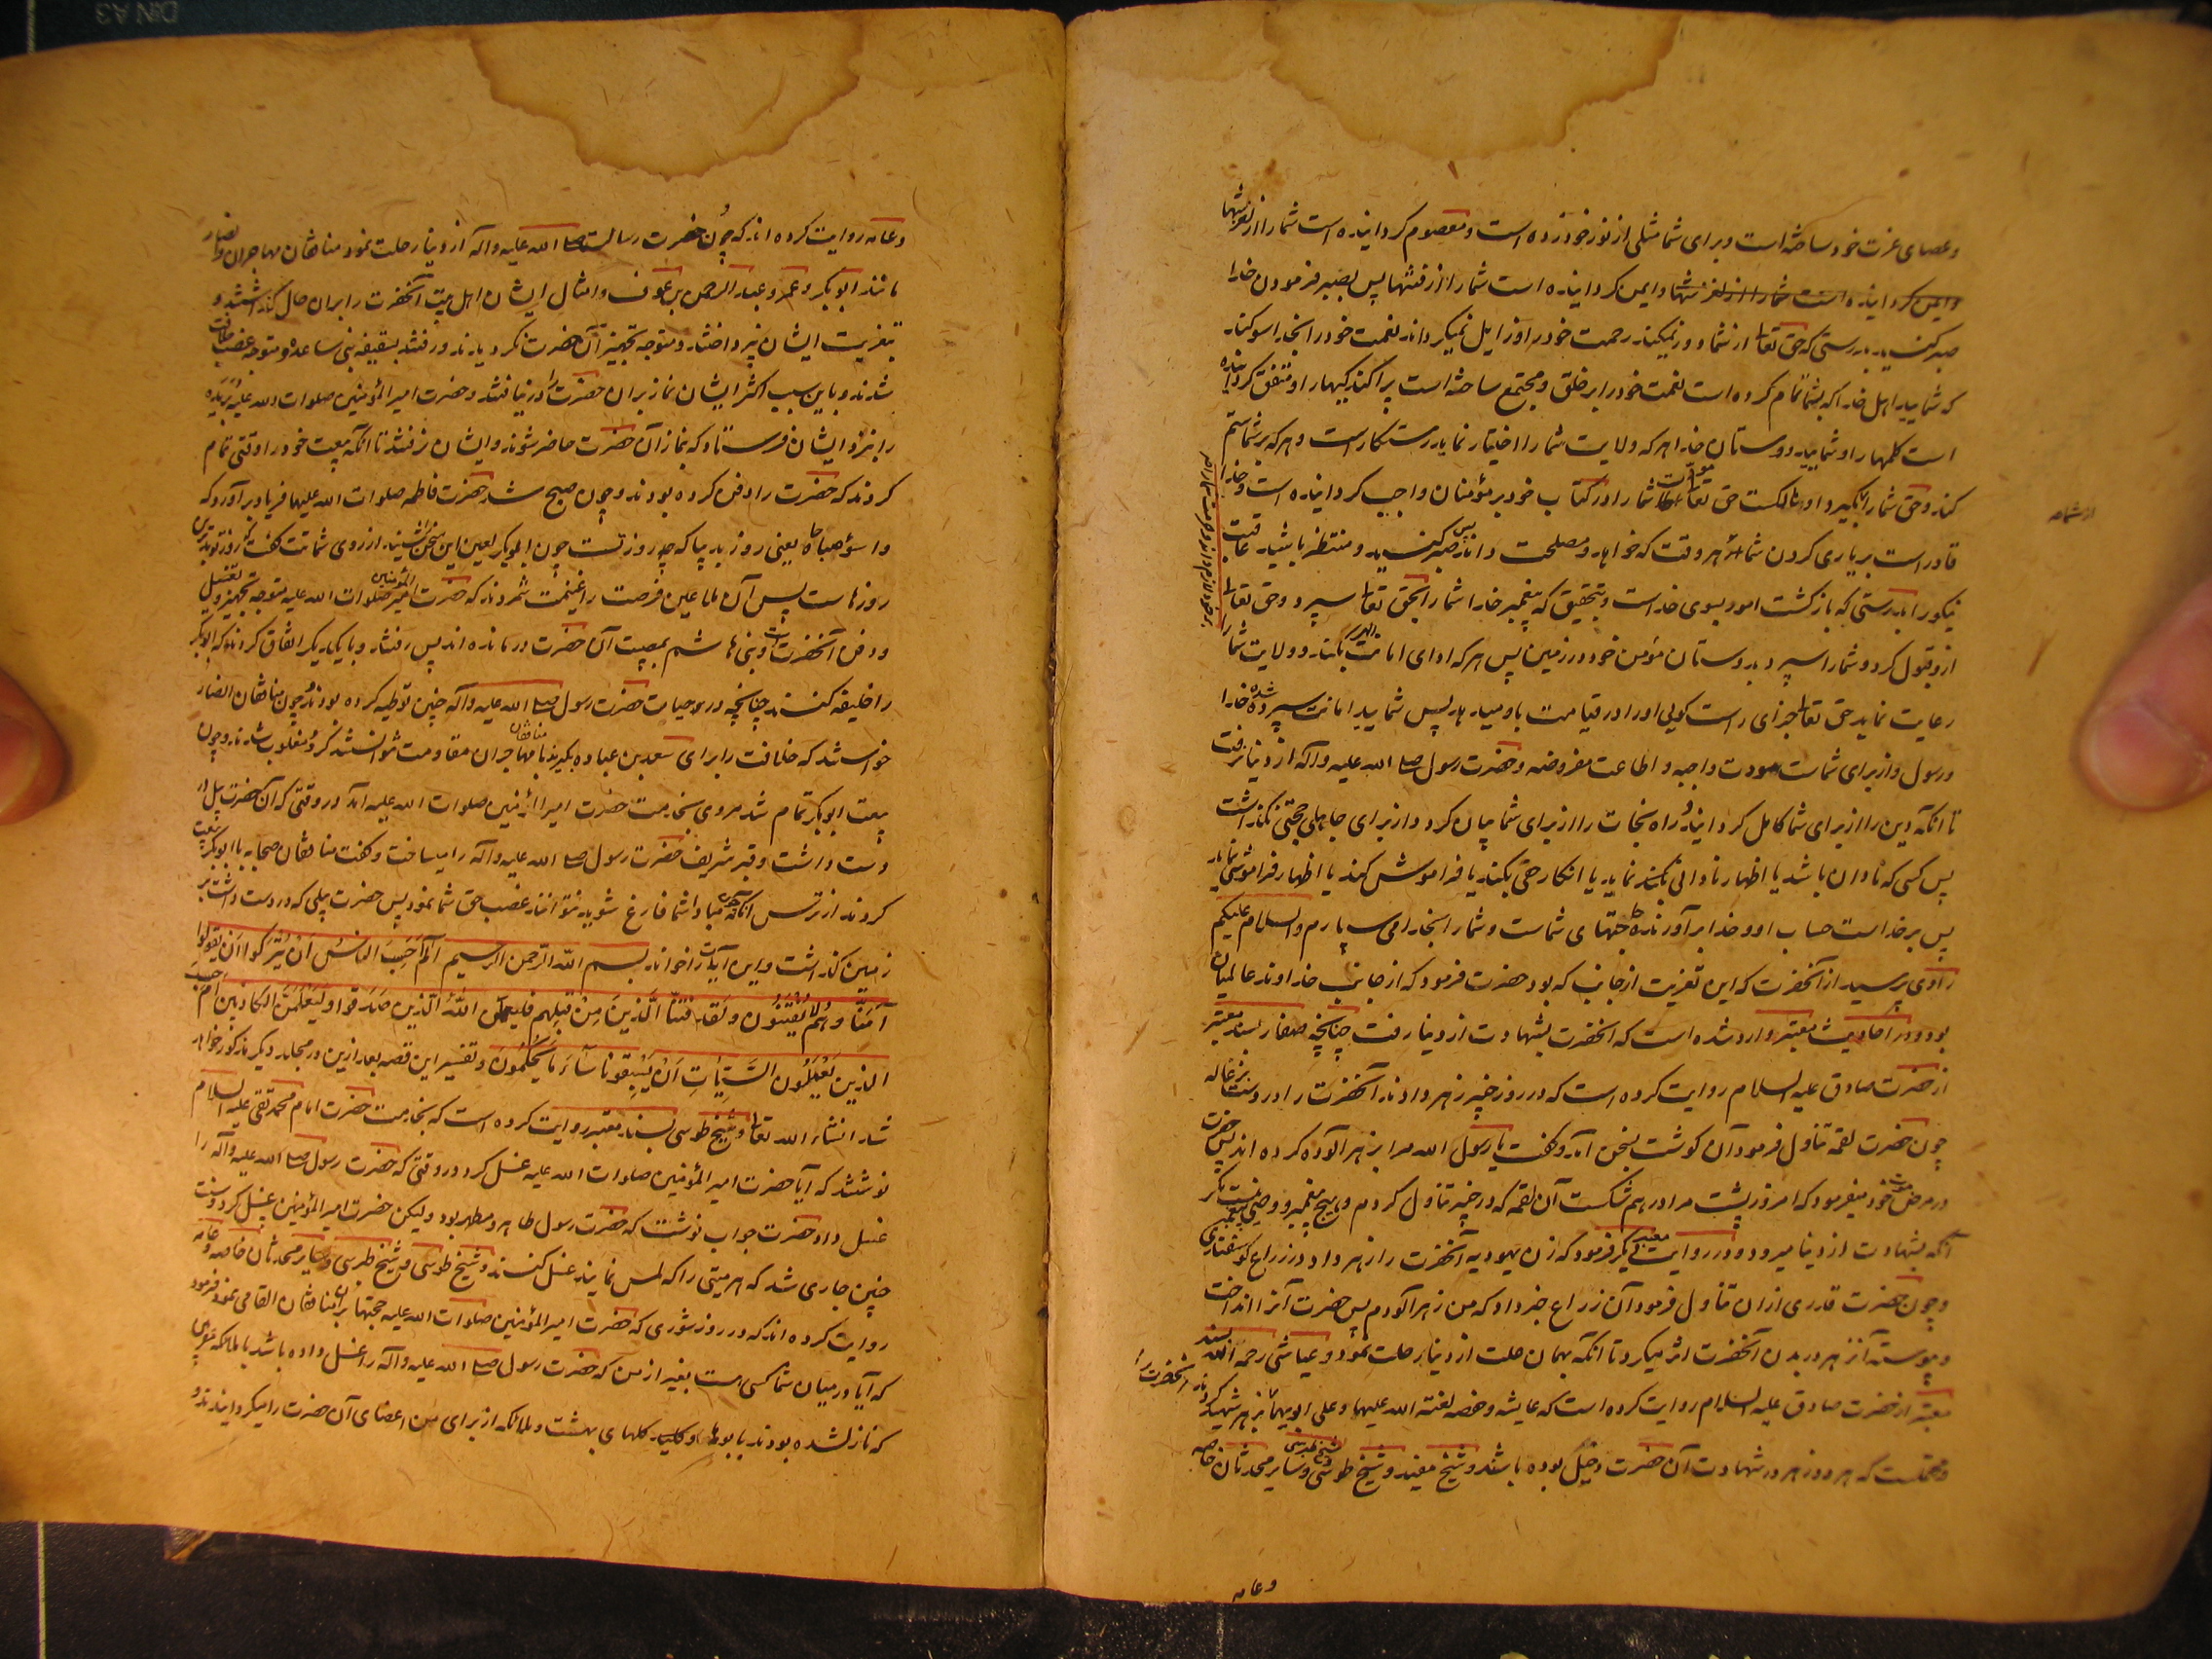 وعصای عزت خود ساخته است و برای شما مثلی از نور خود زده است و معصوم گردانیده است شما را از لغزشها
وایمن گردانیده است شما را از فتنها پس بصبر فرمودن خدا
صبر کنید بدرستی که حق تعالی از شما دور نمیکند رحمت خود را و زایل نمیگرداند نعمت خود را بخدا سوکند
که شمایید اهل خدا که بشما تمام کرده است نعمت خود را بر خلق و مجتمع ساخته است پراکندگیها را و متفق گردانیده
است کلمها را و شمایید دوستان خدا هرکه ولایت شما را اختیار نماید رستکار است و هرکه بر شما ستم
کند و حق شما را بگیرد او هالکست حق تعالی مودت شما را در کتاب خود بر مؤمنان واجب گردانیده است و خدا
قادر است بر یاری کردن شما هر وقت که خواهد و مصلحت داند پس صبر کنید و منتظر باشید عاقبت
نیکو را بدرستی که بازگشت امور بسوی خداست و بتحقیق که پیغمبر خدا شما را بحق تعالی سپرد و حق تعالی
از و قبول کرد و شما را سپرد بدوستان مؤمن خود در زمین پس هرکه ادای امانت الهی بکند و ولایت شما را
رعایت نماید حق تعالی جزای راست گویی او را در قیامت باو میدهد پس شمایید امانت سپرده شده خدا
ورسول و از برای شماست مودت واجبه و اطاعت مفروضه و حضرت رسول صلی الله علیه و آله از دنیا نرفت
تا آنکه دین را از برای شما کامل گردانید و راه نجات را از برای شما بیان کرد و از برای جاهلی حجتی نگذاشت
پس کسی که نادان باشد یا اظهار نادانی نماید یا انکار حق بکند یا فراموش کند یا اظهار فراموشی نماید
پس بر خداست حساب او و خدا برآورنده حاجتهای شماست و شما را بخدا می سپارم والسلام علیکم
راوی پرسید از آنحضرت که این تعزیت از جانب که بود حضرت فرمود که از جانب خداوند عالمیان
بود و در احادیث معتبر وارد شده است که آنحضرت بشهادت از دنیا رفت چنانچه صفار بسند معتبر
از حضرت صادق علیه السلام روایت کرده است که در روز خیبر زهر دادند آنحضرت را در دست بزغاله
چون حضرت لقمه تناول فرمود آن گوشت بسخن آمد و گفت یا رسول الله مرا بزهر آلوده کرده اند پس حضرت
در مرض موت خود میفرمود که امروز پشت مرا در هم شکست آن لقمه که در خیبر تناول کردم و هیچ پیغمبر و وصی پیغمبر نیست مگر
آنکه بشهادت از دنیا میرود و در روایت معتبر دیگر فرمود که زن یهودیه آنحضرت را زهر داد در ذراع گوسفندی
و چون حضرت قدری ازان تناول فرمود آن ذراع خبر داد که من زهر آلودم پس حضرت آنرا انداخت
و پیوسته آن زهر در بدن آنحضرت اثر میکرد تا آنکه بهمان علت از دنیا رحلت نمود و عیاشی رحمه الله بسند
معتبر از حضرت صادق علیه السلام روایت کرده است که عایشه و حفصه لعنة الله علیهما و علی ابویهما بزهر شهید کردند آنحضرت را
و محتملست که هر دو زهر در شهادت آن حضرت دخیل بوده باشد و شیخ مفید و شیخ طوسی و شیخ طبرسی و سایر محدثان خاصه
وعامه
وعامه روایت کرده اند که چون حضرت رسالت صلی الله علیه و آله از دنیا رحلت نمود منافقان مهاجران و انصار
مانند ابوبکر و عمر و عبد الرحمن بن عوف و امثال ایشان اهل بیت آنحضرت را بران حال گذاشتند و
بتعزیت ایشان نپرداختند و متوجه تجهیز آن حضرت نگردیدند و رفتند بسقیفه بنی ساعده و متوجه غصب خلافت
شدند و باین سبب اکثر ایشان نماز بران حضرت را در نیافتند و حضرت امیر المؤمنین صلوات الله علیه بریده
را بنزد ایشان فرستاد که بنماز آن حضرت حاضر شوند و ایشان نرفتند تا آنکه بیعت خود را وقتی تمام
کردند که حضرت را دفن کرده بودند و چون صبح شد حضرت فاطمه صلوات الله علیها فریاد برآورد که
وا سؤ صباحاه یعنی روز بدیست چون ابوبکر لعین این سخن را شنید از روی شماتت گفت که روز تو بدترین
روزهاست پس آن ملاعین فرصت را غنیمت شمردند که حضرت امیر المؤمنین صلوات الله علیه متوجه تجهیز و تغسیل
و دفن آنحضرت است و بنی هاشم بمصیبت آن حضرت درمانده اند پس رفتند و با یکدیگر اتفاق کردند که ابوبکر
را خلیفه کنند چنانچه در حیات حضرت رسول صلی الله علیه و آله چنین توطیه کرده بودند و چون منافقان انصار
خواستند که خلافت را برای سعد بن عباده بگیرند با منافقان مهاجران مقاومت نتوانستند کرد و مغلوب شدند و چون
بیعت ابوبکر تمام شد مردی بخدمت حضرت امیر المؤمنین صلوات الله علیه آمد در وقتی که آن حضرت بیل در
دست داشت و قبر شریف حضرت رسول صلی الله علیه و آله را میساخت و گفت منافقان صحابه با ابوبکر بیعت
کردند از ترس آنکه مبادا شما فارغ شوید نتوانند غصب حق شما نمود پس حضرت بیلی که در دست داشت بر
زمین گذاشت و این آیات را خواند بسم الله الرحمن الرحیم الم أحسب الناس أن یترکوا أن یقولوا
آمنا و هم لا یفتنون ولقد فتنا الذین من قبلهم فلیعلمن الله الذین صدقوا ولیعلمن الکاذبین ام حسب
الذین یعملون السیئات أن یسبقونا ساء ما یحکمون و تفسیر این قصه بعد ازین در مجلد دیگر مذکور خواهد
شد انشاء الله تعالی و شیخ طوسی بسند معتبر روایت کرده است که بخدمت حضرت امام محمد تقی علیه السلام
نوشتند که آیا حضرت امیر المؤمنین صلوات الله علیه غسل کرد در وقتی که حضرت رسول صلی الله علیه و آله را
غسل داد حضرت جواب نوشت که حضرت رسول طاهر و مطهر بود ولیکن حضرت امیر المؤمنین غسل کرد و سنت
چنین جاری شد که هر میتی را که لمس نمایند غسل کنند و شیخ طوسی و شیخ طبرسی و سایر محدثان خاصه و عامه
روایت کرده اند که در روز شوری که حضرت امیر المؤمنین صلوات الله علیه حجتها بران منافقان القا می نمود فرمود
که آیا در میان شما کسی هست بغیر از من که حضرت رسول صلی الله علیه و آله را غسل داده باشد با ملائکه مقربی
که نازل شده بودند با بوها و گلهای بهشت و ملائکه از برای من اعضای آن حضرت را میگردانیدند و